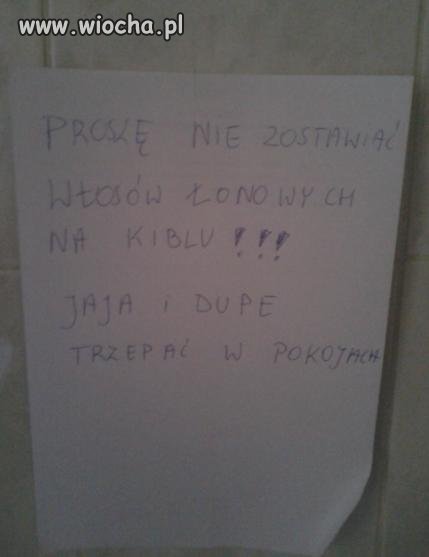 www.wiocha.pl
PROSZĘ NIE ZOSTAWIAĆ
WŁOSÓW ŁONOWYCH
NA KIBLU !!!
JAJA i DUPE
TRZEPAĆ W POKOJACH